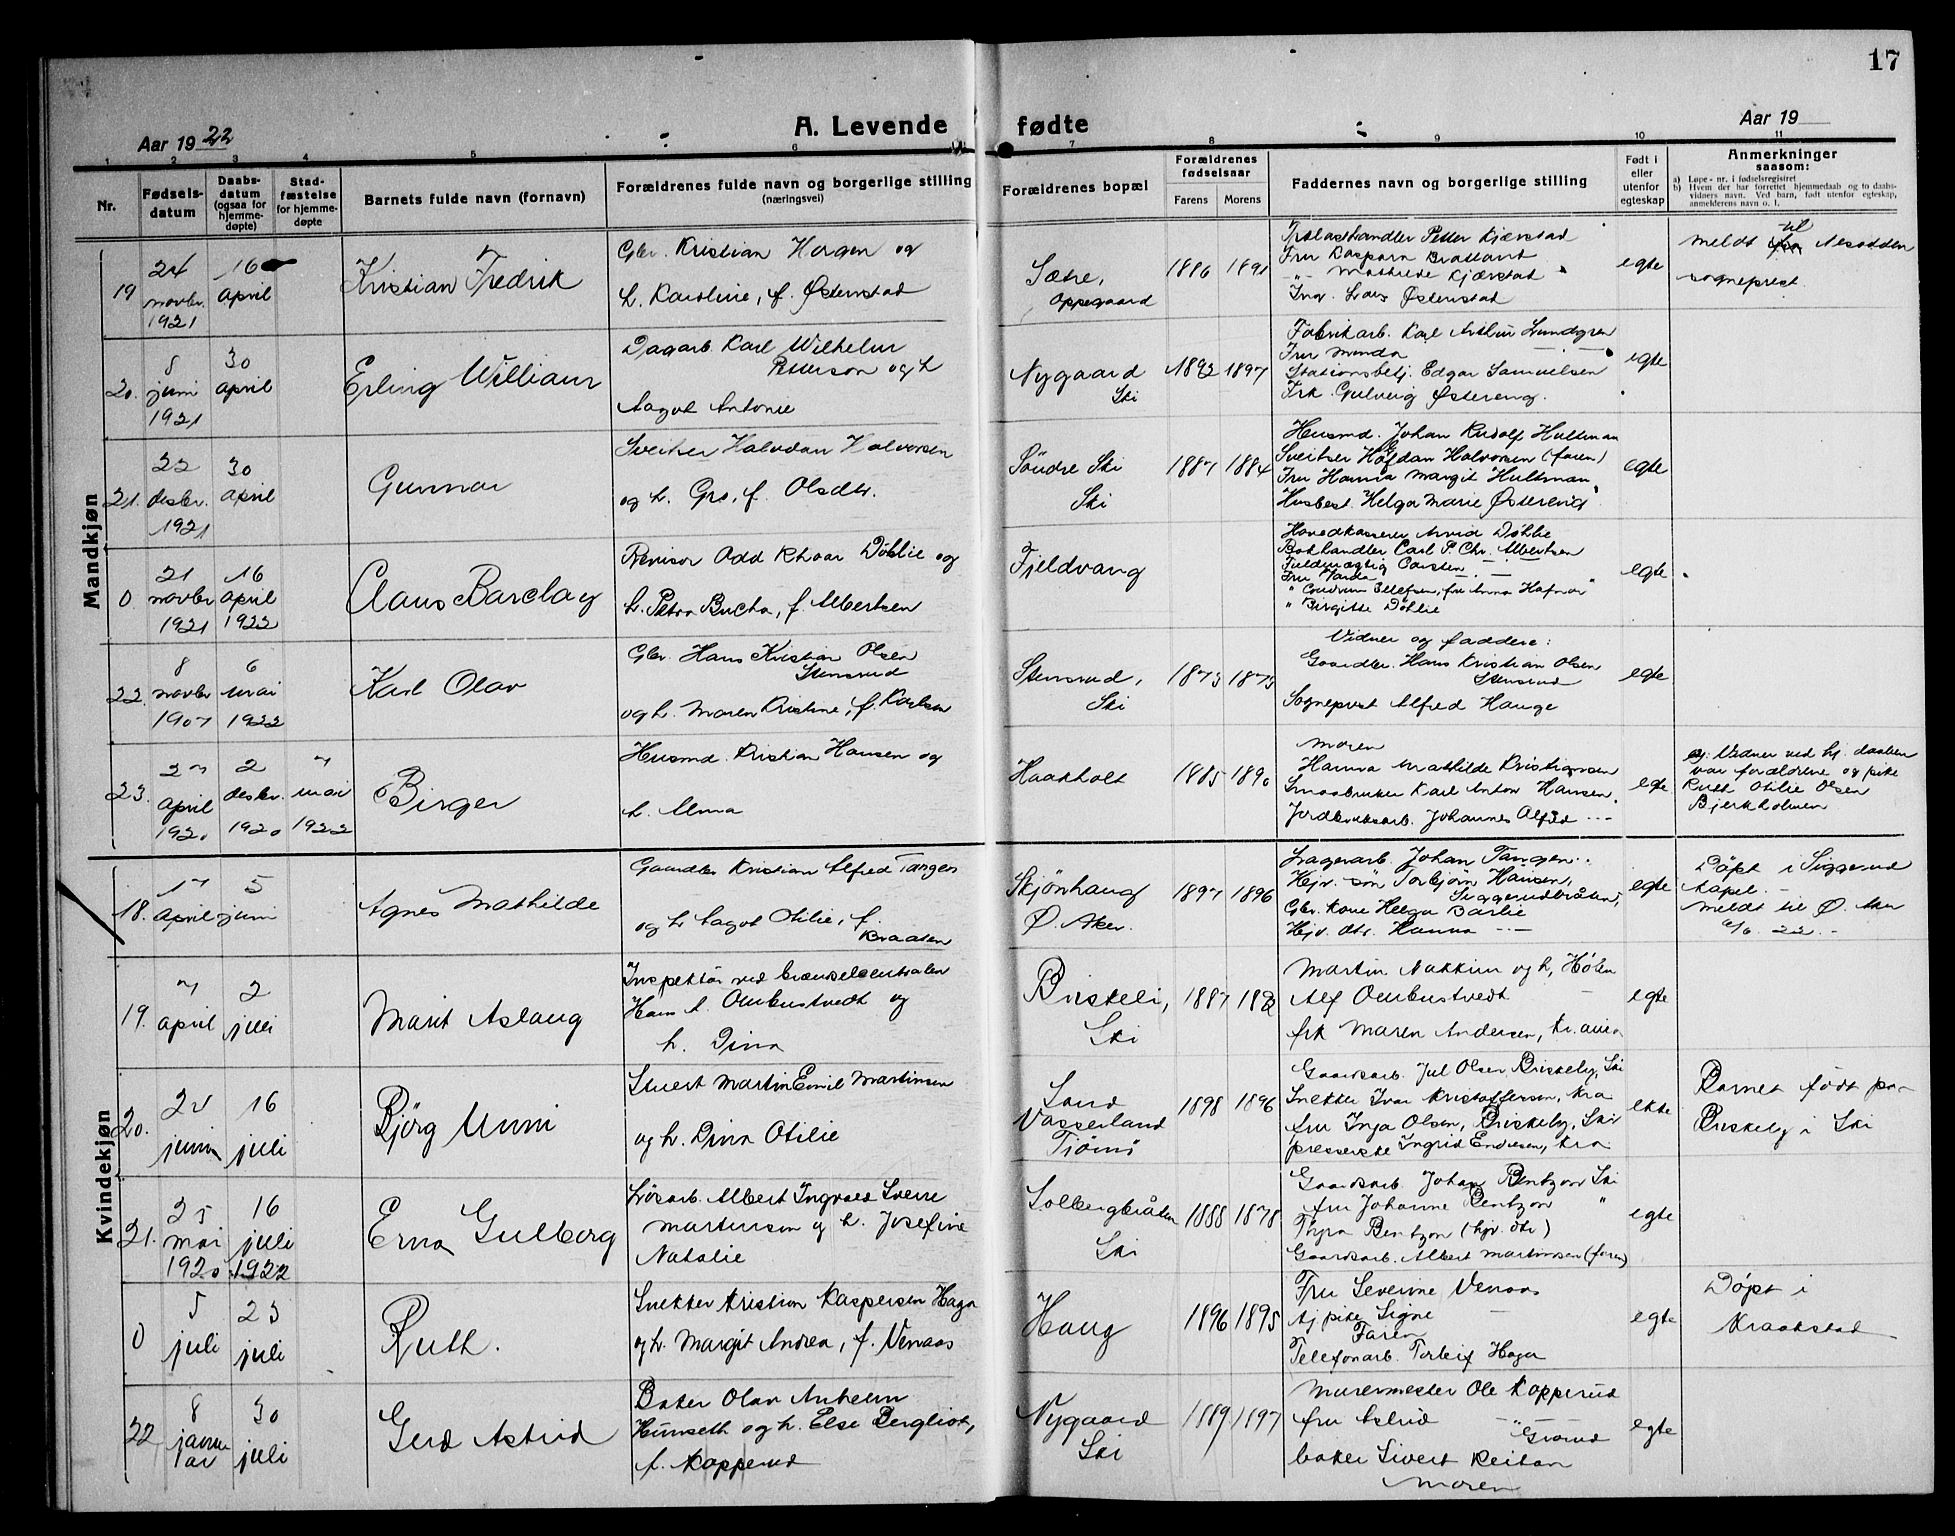 17
Aar 1922
A. Levende fødte
Aar 19
1 2 3 4 5 6 7 8 9 10 11
Nr.
Fødselsdatum
Daabsdatum (ogsaa for hjemmedøpte)
Stadfæstelse for hjemmedøpte
Barnets fulde navn (fornavn)
Forældrenes fulde navn og borgerlige stilling (næringsvei)
Forældrenes bopæl
Forældrenes fødselsaar
Farens Morens
Faddernes navn og borgerlige stilling
Født i eller utenfor egteskap
Anmerkninger saasom:
a) Løpe-nr. i fødselsregistret
b) Hvem der har forrettet hjemmedaab og to daabsvidners navn. Ved barn, født utenfor egteskap, anmelderens navn o. l.
Mandkjøn
19
24 novbr. 1921
16 april
Kristian Fredrik
Gbr. Kristian Hagen og
h. Karoline, f. Østenstad
Sætre,
Oppegaard
1886 1891
Trælasthandler Petter Kjærstad
Fru Kaspara Brattant
" Mathilde Kjærstad
Ingv. Lars Østenstad
egte
Meldt til Nesodden
sogneprest.
20.
8 juni 1921
30 april
Erling William
Dagarb. Karl Wilhelm
Petterson og h.
Aagot Antonie
Nygaard
Ski
1892 1897
Fabrikarb. Karl Arthur Lundgren
Fru Minda — —
Stationsbetj. Edgar Samuelsen
Frk. Gulveig Østereng.
egte
21.
22 desbr. 1921
30 april
Gunnar
Sveitser Halvdan Halvorsen
og h. Gro, f. Olsdtr.
Søndre Ski
Ski
1887 1884
Husmd. Johan Rudolf Hultman
Sveitser Halfdan Halvorsen (faren)
Fru Hanna Margit Hultman
Husbest. Helga Marie Østereng
egte
0
21 novbr 1921
16 april 1922
Claus Barclay
Revisor Odd Døhlie og
h. Petra Bucha, f. Albertsen
Fjeldvang
Hovedkasserer Arvid Døhlie
Bokhandler Carl P. Chr. Albertsen
Fuldmægtig Carsten — —
Fru Varda — —
" Gudrun Ellefsen, fru Anna Hafnor
" Birgitte Døhlie
egte
22.
8 novbr 1907
6 mai 1922
Karl Olav
Gbr. Hans Kristian Olsen
Stensrud
og h. Maren Kristine, f. Karlsen
Stensrud,
Ski
1873 1873
Vidner og faddere:
Gaardbr. Hans Kristian Olsen
Stensrud
Sogneprest Alfred Hauge
egte
23.
27 april 1920
2 desbr. 1920
7 mai 1922
Birger
Husmd. Kristian Hansen og
h. Alma
Haakholt
1885 1890
Moren
Hanna Mathilde Kristiansen
Smaabruker Karl Anton Hansen
Jordbruksarb. Johannes Alfred — —
egte
Vidner ved hj. daaben
var forældrene og pike
Ruth Otilie Olsen
Bjerkholmen
Kvindekjøn
18.
17 april
5 juni
Agnes Mathilde
Gaardbr Kristian Alfred Tangen
og h. Aagot Otilie, f.
Braaten
Skjønhaug
Ø. Aker.
1897 1896
Lagerarb. Johan Tangen
Hjv. søn Torbjørn Hansen,
Siggerudbråten,
Gbr. kone Helga Barlie
Hjv. dtr. Hanna — —
egte
Døpt i Siggerud
kapel. —
Meldt til Ø. Aker
9/6 22. —
19.
7 april
2 juli
Marit Aslaug
Inspektør ved brændselcentralen
Hans A. Ombustvedt og
h. Dina
Briskeli,
Ski
1887
Martin Nakkim og h, Hølen
Alf Ombustvedt —
frk Maren Andersen, Kr.ania
egte
20.
juni
16 juli
Bjørg Unni
Stuert Martin Emil Martinsen
og h. Dina Otilie
Sand
Vasserland
Tjømø
1898 1896
Gaardsarb. Jul Olsen Briskeby, Ski
Snekker Ivar Kristoffersen, Kra
fru Inga Olsen, Briskeby, Ski
presserske Ingrid Endresen, Kra
ekte
Barnet født på
Briskeby i Ski
21.
25 mai 1920
16 juli 1922
Erna Gulborg
Løsarb. Albert Ingvald Sverre
Martinsen og h. Josefine
Natalie
Solbergbråten
Ski
1888 1878
Gaardsarb. Johan Bentzon Ski
fru Johanne Bentzon "
Thyra Bentzon (hjv. dtr)
Gaardsarb. Albert Martinsen (faren)
egte
0
5 juli
23 juli
Ruth.
Snekker Kristian Kaspersen Haga
og h. Margit Andrea, f. Venaas
Haug
1896 1895
Fru Severine Venaas
Arb. pike Signe —
Faren
Telefonarb. Torleif Haga
egte
Døpt i
Kraakstad
22
8 januar
30 juli
Gerd Astrid
Baker Olav Anhelm
Hunseth og h. Else Bergliot,
f. Kopperud
Nygaard
Ski
1889 1897
Murermester Ole Kopperud
fru Astrid — " —
Grorud
baker Sivert Reitan
Moren
egte